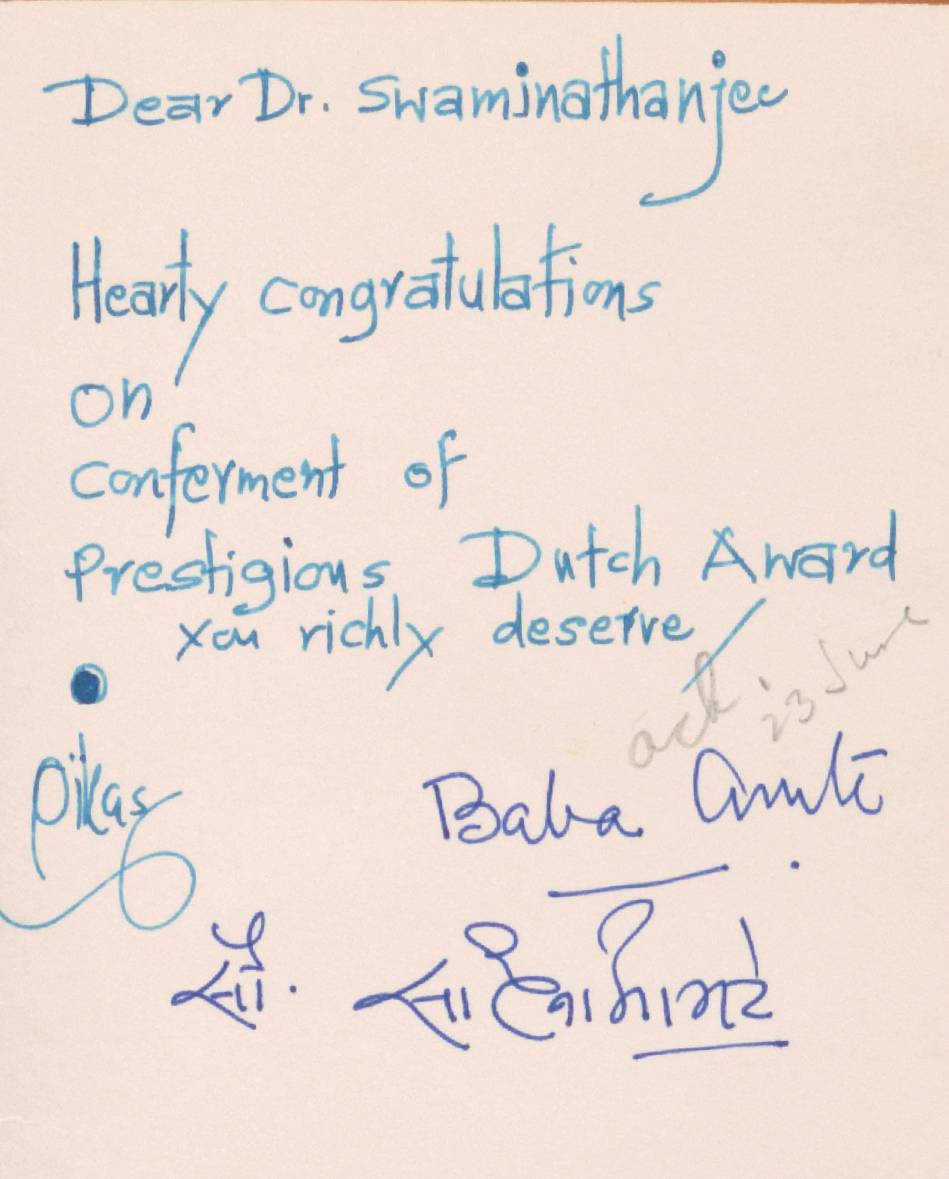 Dear Dr. Swaminathanjee
Hearty congratulations
on
conferment of
prestigious Dutch Award
you richly deserve
ack. 23 June
Vikas
Baba Amte
सौ. साधना आमटे